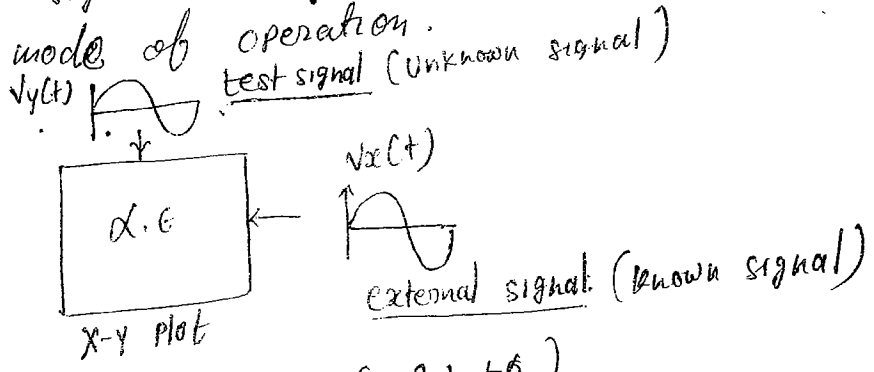 mode of operation.
Vy(t) test signal (unknown signal)
Vx(t)
external signal. (known signal)
X-Y plot